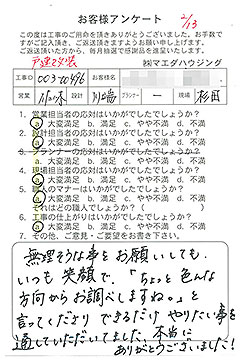 お客様アンケート
2/13
この度は工事のご用命を頂きありがとうございました。お手数で
すがご記入頂き、ご返送頂きますようお願い申し上げます。
ご返送頂いた方から、毎月抽選で感謝品を進呈いたします。
戸建改装
㈱マエダハウジング
工事ID 003-00496 お客様名
営業 川﨑 設計 川﨑 プランナー ー 現場 杉田
1. 営業担当者の対応はいかがでしたでしょうか？
a 大変満足 b. 満足 c. やや不満 d. 不満
2. 設計担当者の対応はいかがでしたでしょうか？
a 大変満足 b. 満足 c. やや不満 d. 不満
3. プランナーの対応はいかがでしたでしょうか？
a. 大変満足 b. 満足 c. やや不満 d. 不満
4. 現場担当者の対応はいかがでしたでしょうか？
a 大変満足 b. 満足 c. やや不満 d. 不満
5. 職人のマナーはいかがでしたでしょうか？
a 大変満足 b. 満足 c. やや不満 d. 不満
それはどの職人でしょうか？( )
6. 工事の仕上がりはいかがでしたでしょうか？
a 大変満足 b. 満足 c. やや不満 d. 不満
7. その他、ご意見・ご要望をお書き下さい。
無理そうな事をお願いしても、
いつも笑顔で、「ちょっと色んな
方向からお調べしますね。」と
言ってくださり できるだけ やりたい事を
通していただいてました。本当に
ありがとうございました！